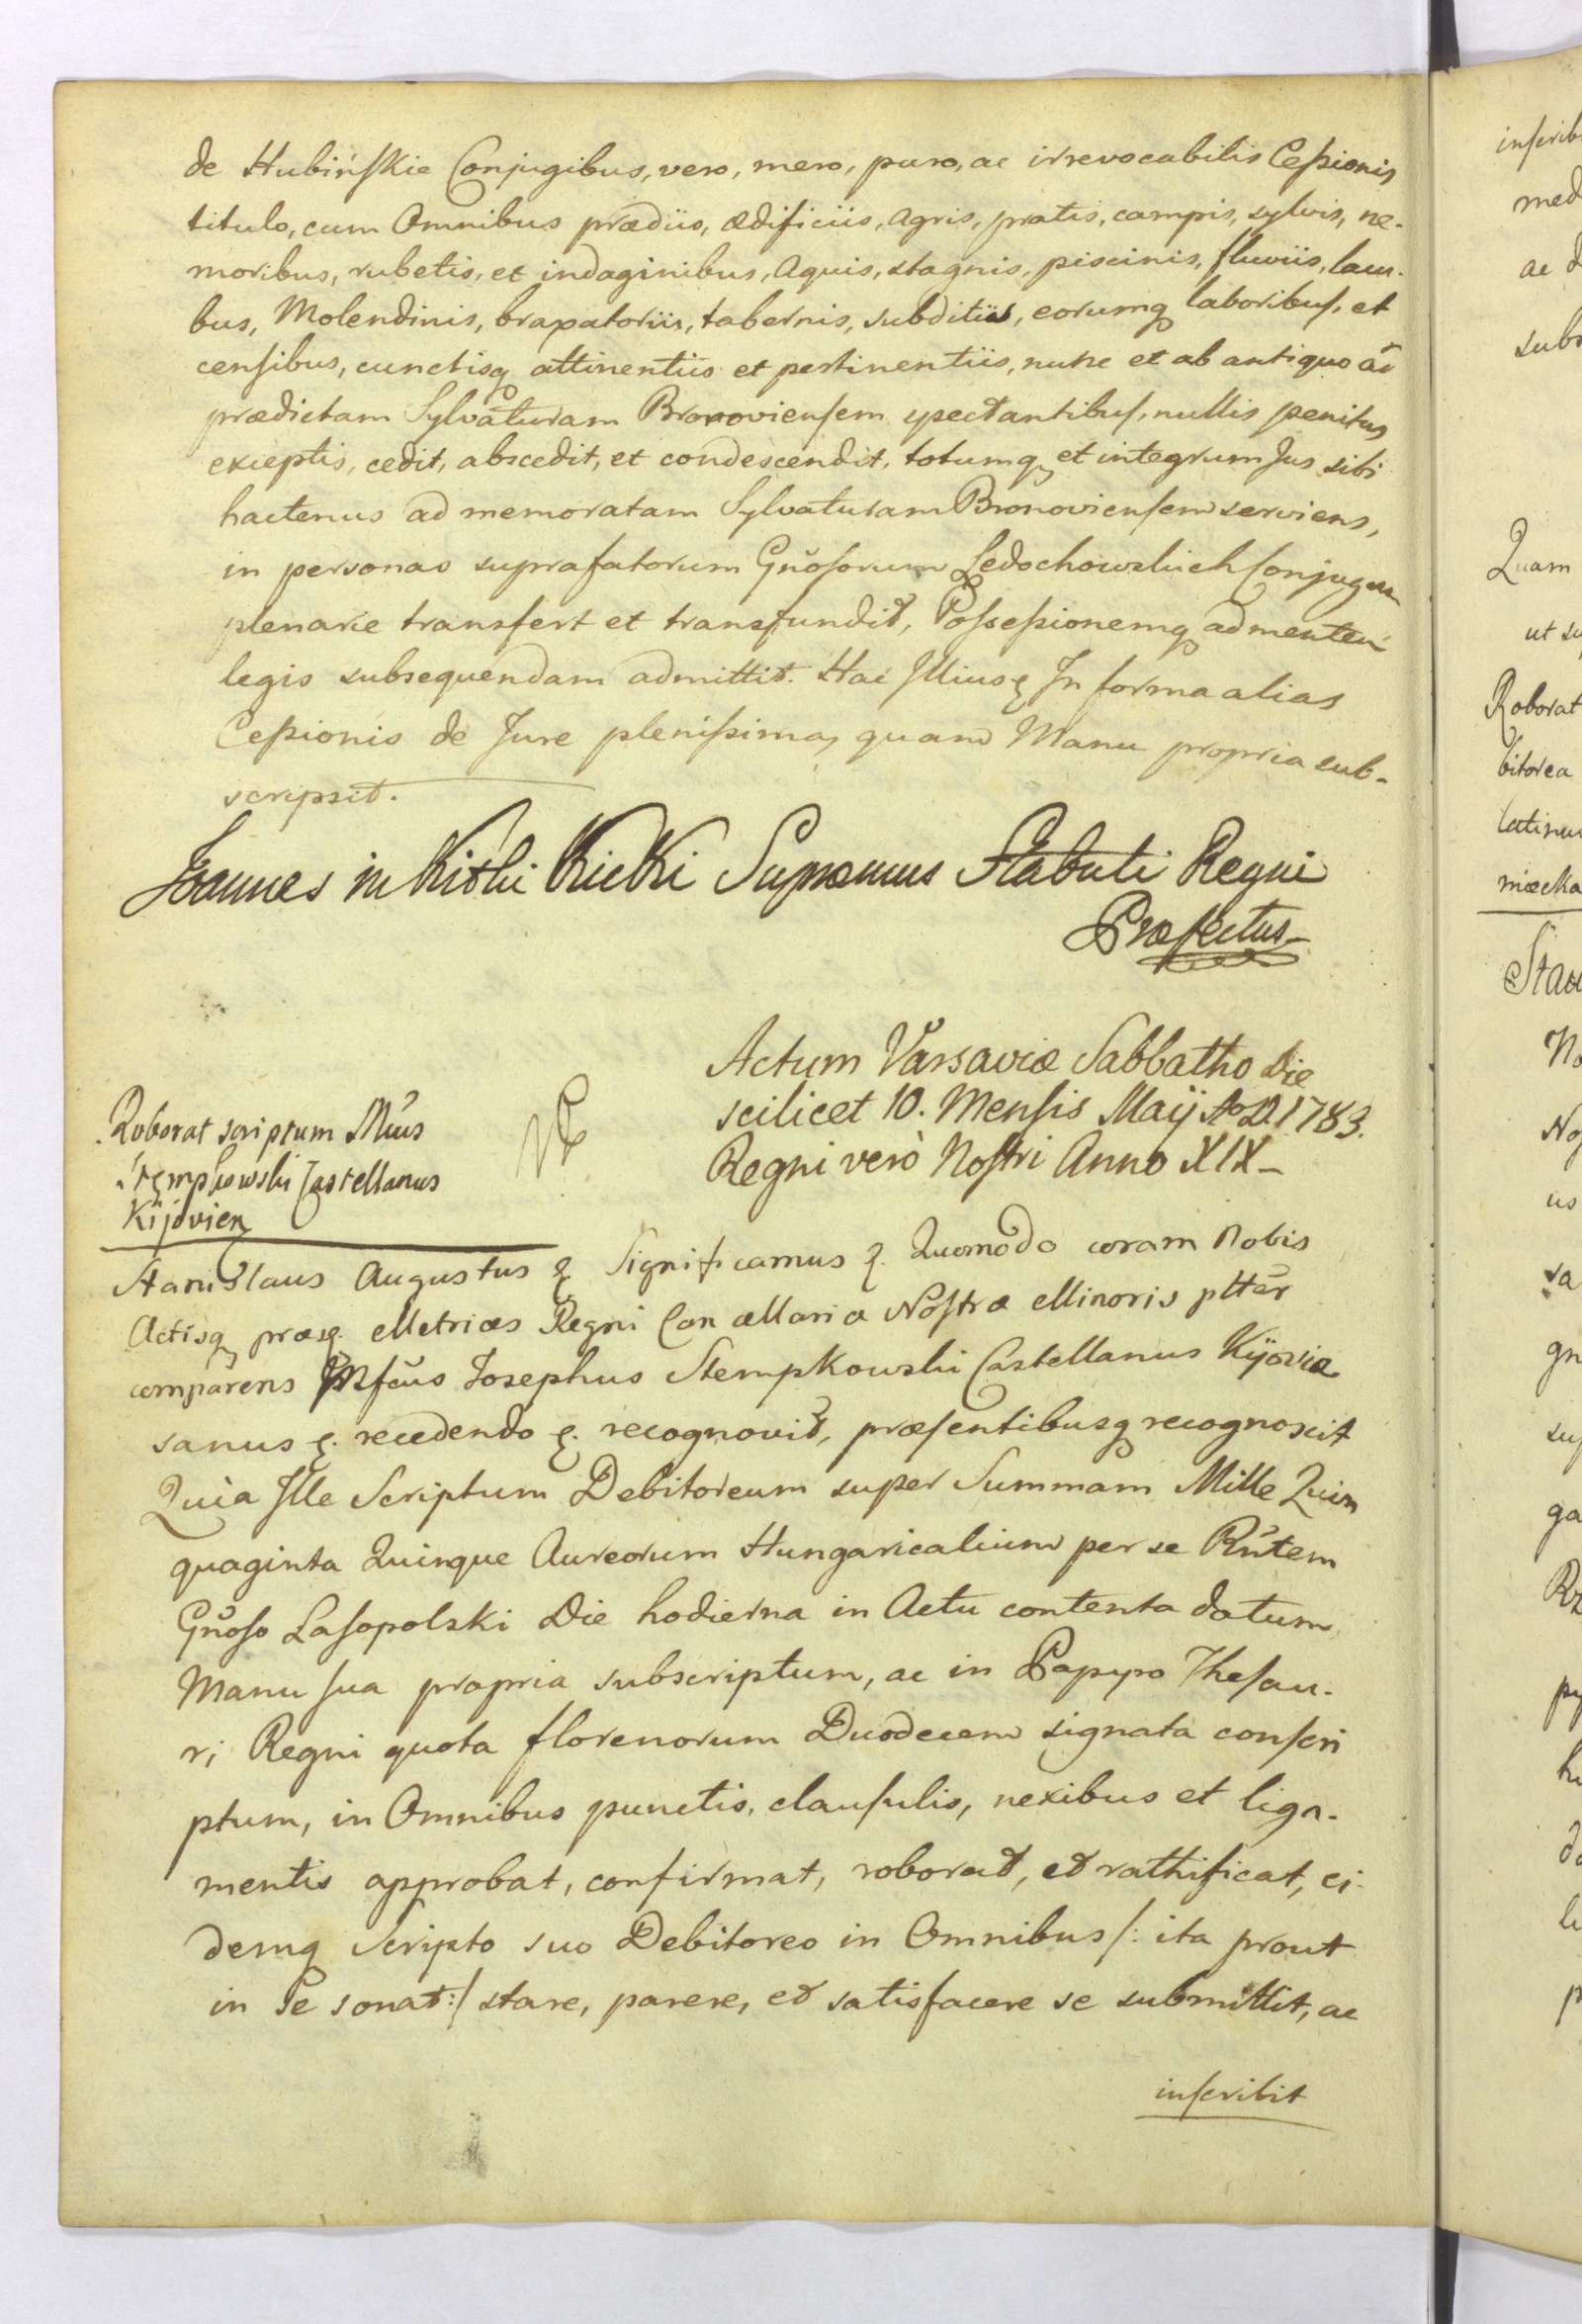 de Hubińskie Conjugibus, vero, mero, puro, ac irrevocabilis Cessionis
titulo, cum Omnibus prædiis, ædificiis, agris, pratis, campis, sylvis, ne-
moribus, rubetis, et indaginibus, aquis, stagnis, piscinis, fluviis, lacu-
bus, Molendinis, braxatoriis, tabernis, subditiis, eorumq laboribus, et
censibus, cunctisq attinentiis et pertinentiis, nunc et ab antiquo ad
prædictam Sylvaturam Bronoviensem spectantibus, nullis penitus
exceptis, cedit, abscedit, et condescendit, totumq et integrum Jus sibi
hactenus ad memoratam Sylvaturam Bronoviensem serviens,
in personas suprafatorum Gñosorum Ledochowskich Conjugum
plenarie transfert et transfundit, Possessionemq ad mentem
legis subsequendam admittit. Hac Illius In forma alias
Cessionis de Jure plenissima, quam Manu propria sub-
scripsit.
Joannes in Kitki Kicki Supremus Stabuli Regni
Præfectus
Actum Varsaviæ Sabbatho Die
scilicet 10. Mensis Maij Ao D. 1783.
Regni verò Nostri Anno XIX
Roborat scriptum Mĩus
Stempkowski Castellanus
Kijovien
Stanislaus Augustus Significamus Quomodo coram Nobis
Actisq præs. Metrices Regni Cancellariæ Nostræ Minoris plttĕr
comparens Mfcus Josephus Stempkowski Castellanus Kijovia
sanus recedendo recognovit, præsentibusq recognoscit
Quia Ille Scriptum Debitoreum super Summam Mille Quin
quaginta Quinque Aureorum Hungaricalium per se Rñtem
Gñoso Lasopolski Die hodierna in Actu contenta datum
Manu sua propria subscriptum, ac in Papyro Thesau-
ri Regni quota florenorum Duodecem signata conscri
ptum, in Omnibus punctis, clausulis, nexibus et liga-
mentis approbat, confirmat, roborat, et rathificat, ei-
demq Scripto suo Debitoreo in Omnibus /: ita prout
in se sonat :/ stare, parere, et satisfacere se submittit, ac
inscribit
med
Quam
Roborat
bitorea